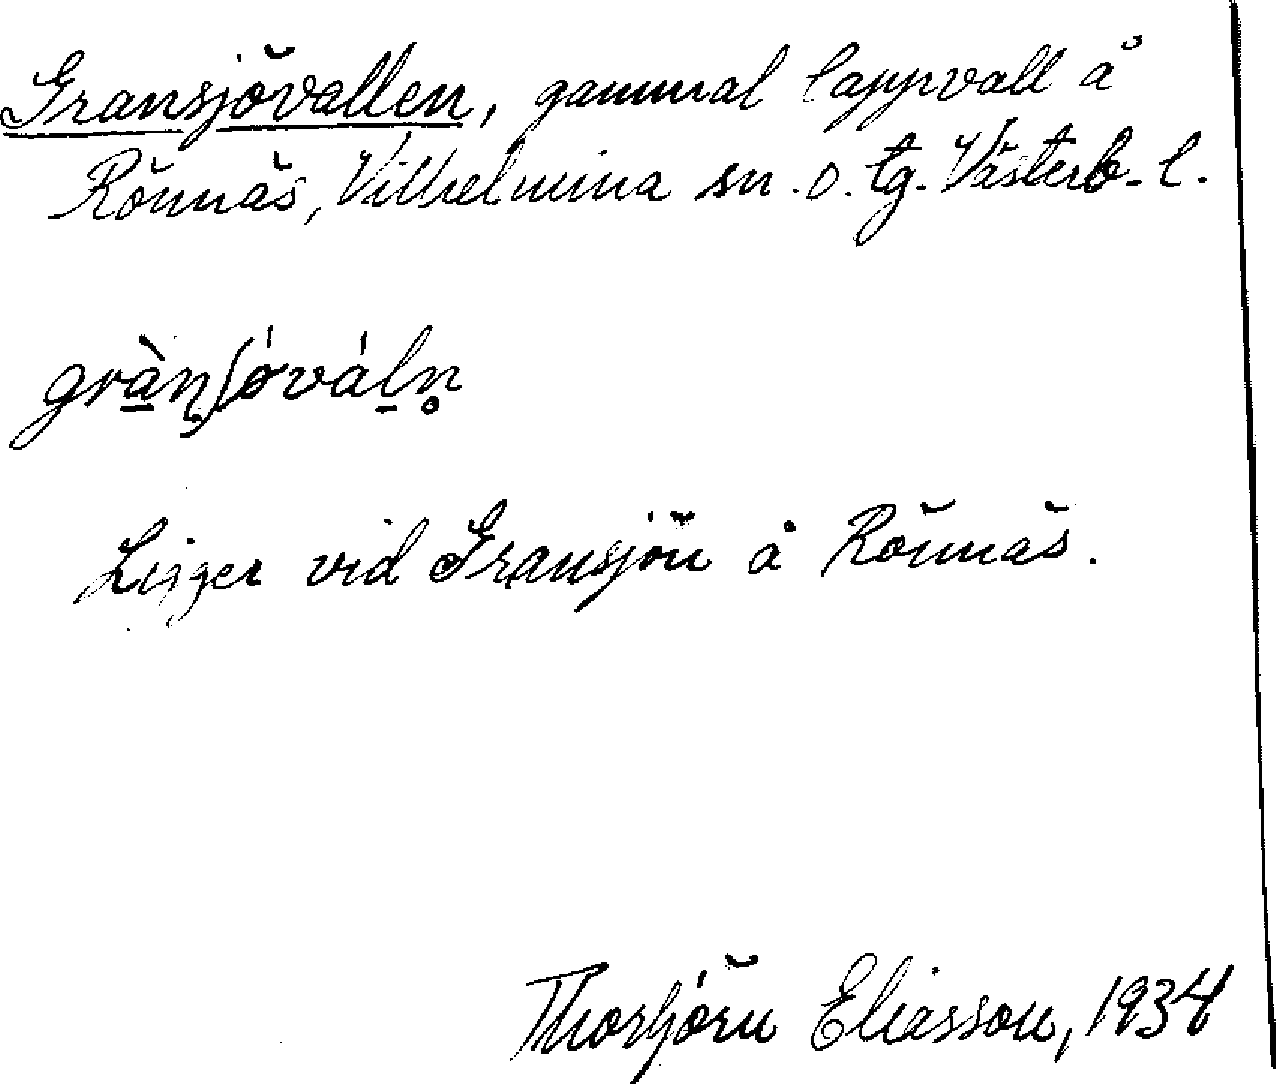 Gransjövallen, gammal lappvall å
Rönnäs, Vilhelmina sn. o. tg. Västerb. l.
grànʃöváln̥
Ligger vid Gransjön å Rönnäs.
Thorbjörn Eliasson, 1934